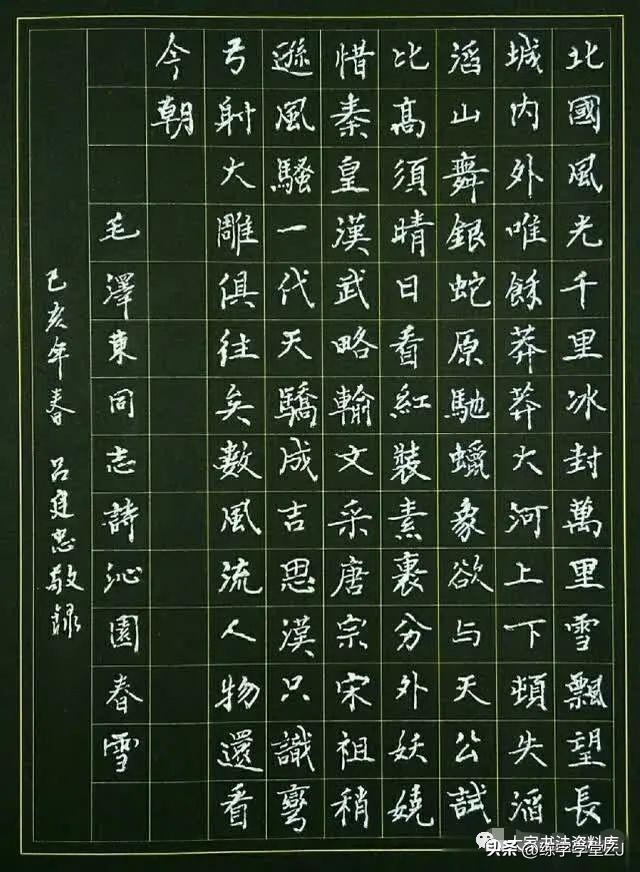 北國風光千里冰封萬里雪飄望長
城内外唯餘莽莽大河上下頓失滔
滔山舞銀蛇原馳蠟象欲与天公試
比高須晴日看紅裝素裹分外妖嬈
惜秦皇漢武略輸文采唐宗宋祖稍
遜風騷一代天驕成吉思漢只識彎
弓射大雕俱往矣數風流人物還看
今朝
毛澤東同志詩沁園春雪
己亥年春 吕忠敬録
大家书法资料库
头条 @练字学堂ZJ